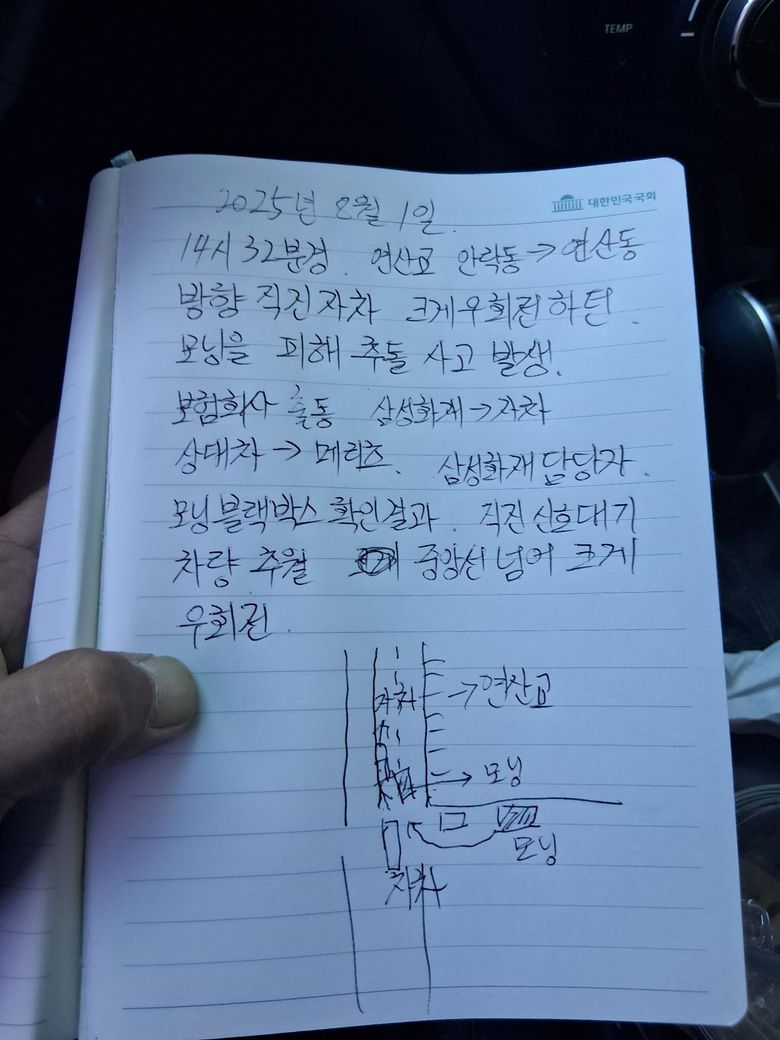 TEMP
대한민국국회
2025년 8월 1일.
14시 32분경. 연산교 안락동 → 연산동
방향 직진 자차 크게우회전하던.
모닝을 피해 추돌 사고 발생.
보험회사 출동 삼성화재 → 자차
상대차 → 메리츠. 삼성화재 담당자.
모닝블랙박스 확인결과. 직진 신호대기
차량 추월 중앙선 넘어 크게
우회전.
자차 → 연산교
→ 모닝
모닝
자차